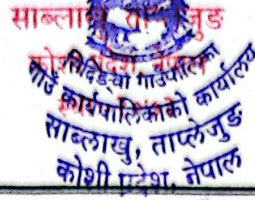 साब्लाखु, ताप्लेजुङ
कोशी प्रदेश, नेपाल
गाउँपालिका
गाउँ कार्यपालिकाको कार्यालय
साब्लाखु, ताप्लेजुङ
कोशी प्रदेश, नेपाल